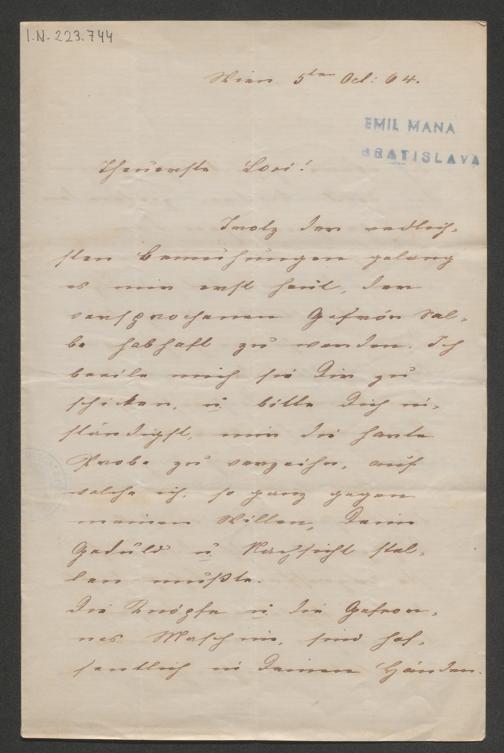 I.N. 223.744
Wien 5ten Oct: 64.
EMIL MANA
BRATISLAVA
Theuerste Lori!
Trotz der redlich-
sten Bemühungen gelang
es mir erst heut, der
versprochenen Gefrör Sal-
be habhaft zu werden. Ich
beeile mich sie Dir zu
schicken, u bitte Dich in-
ständigst, mir die harte
Probe zu verzeihn, auf
welche ich, so ganz gegen
meinen Willen, Deine
Geduld u Nachsicht stel-
len mußte.
Die Knöpfe u die
sind hof-
fentlich in Deinen Händen.